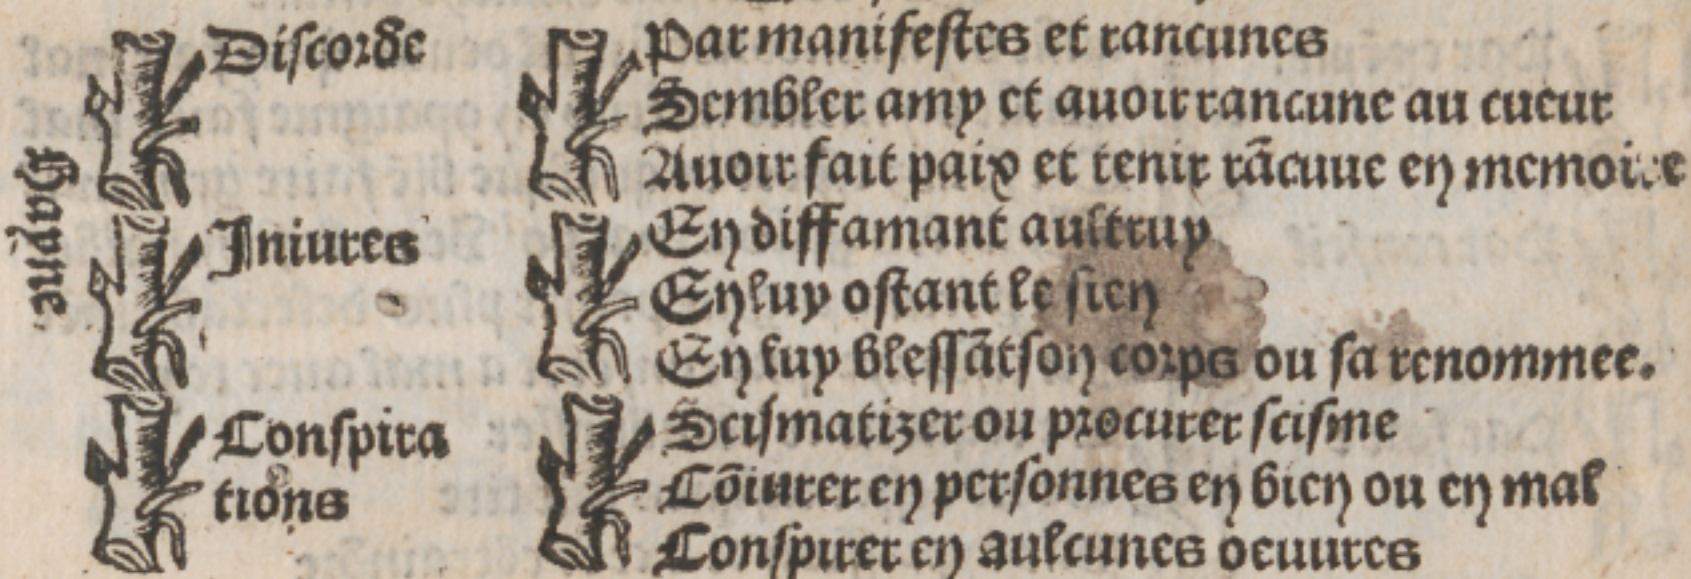 Hayne
Discorde
Par manifestes et rancunes
Sembler amy et auoir rancune au cueur
Auoir fait paix et tenir rãcuue en memoire
Iniures
En diffamant aultruy
En luy ostant le sien
En luy blessãt son corps ou sa renommee.
Conspira
tions
Scismatizer ou procurer scisme
Cõiurer en personnes en bien ou en mal
Conspirer en aulcunes oeuures